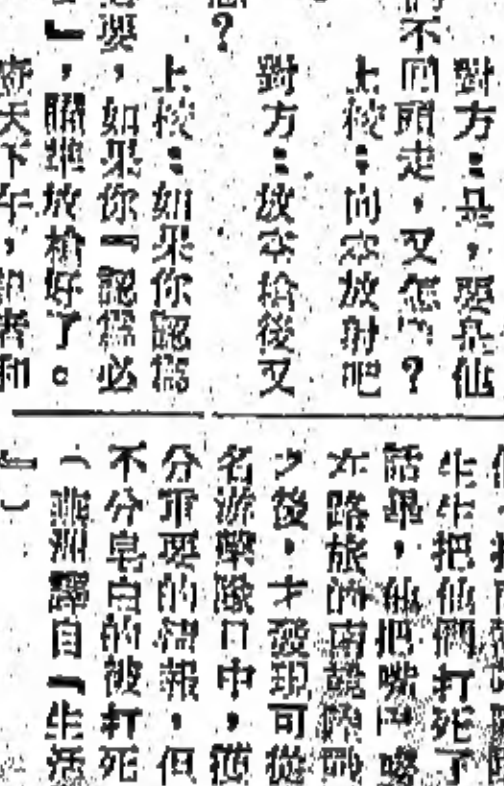 對方：是，要是他
們不回頭走，又怎？
上校：向空放射吧
對方：放空槍後又
？
上校：如果你認為
要，如果你『認為必
』，瞄準放槍好了。
天下午，記者和
生生把他們打死了
話畢，他把嘴
路旅的南韓
之後，才發現可從
名游擊隊口中，獲
分重要的情報，但
不分皂白的被打死
（非洲譯自『生活
』）